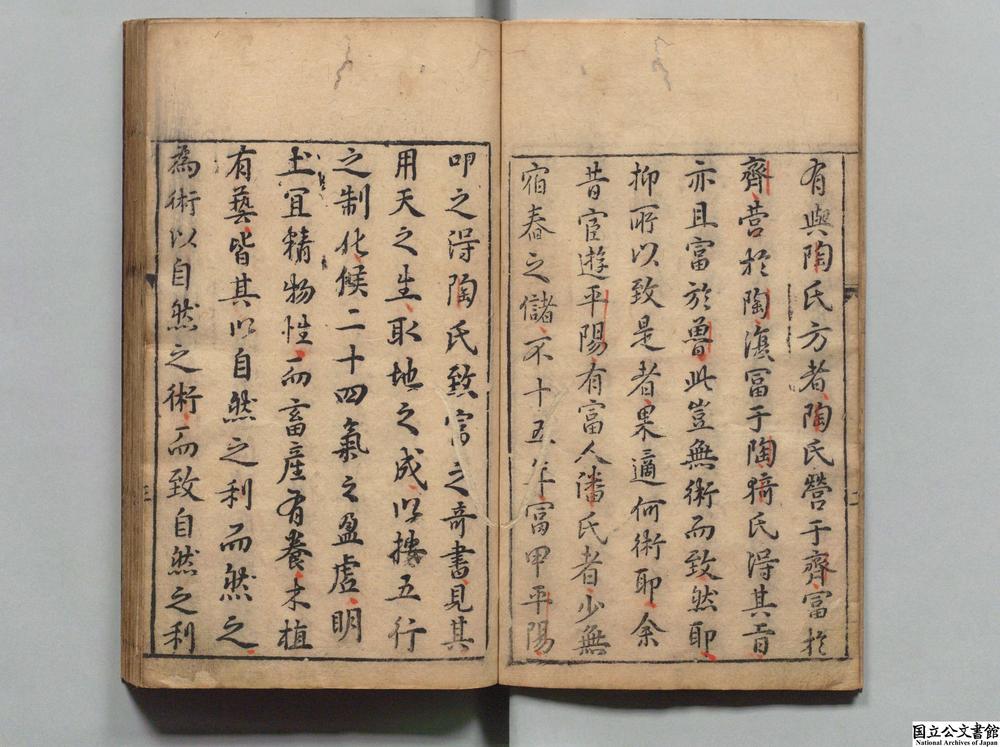 有與陶氏方者陶氏營于齊富於
齊營於陶滇富于陶猗氏淂其旨
亦且富於魯此豈無術而致然耶
抑所以致是者果適何術耶余
昔宦遊平陽有富人潘氏者少無
宿舂之儲不十五年富甲平陽
叩之淂陶氏致富之奇書見其
用天之生取地之成以摟五行
之制化候二十四氣之盈虛明
土宜精物性而畜産有養木植
有藝皆其以自然之利而然之
為術以自然之術而致自然之利
二
三
国立公文書館
National Archives of Japan